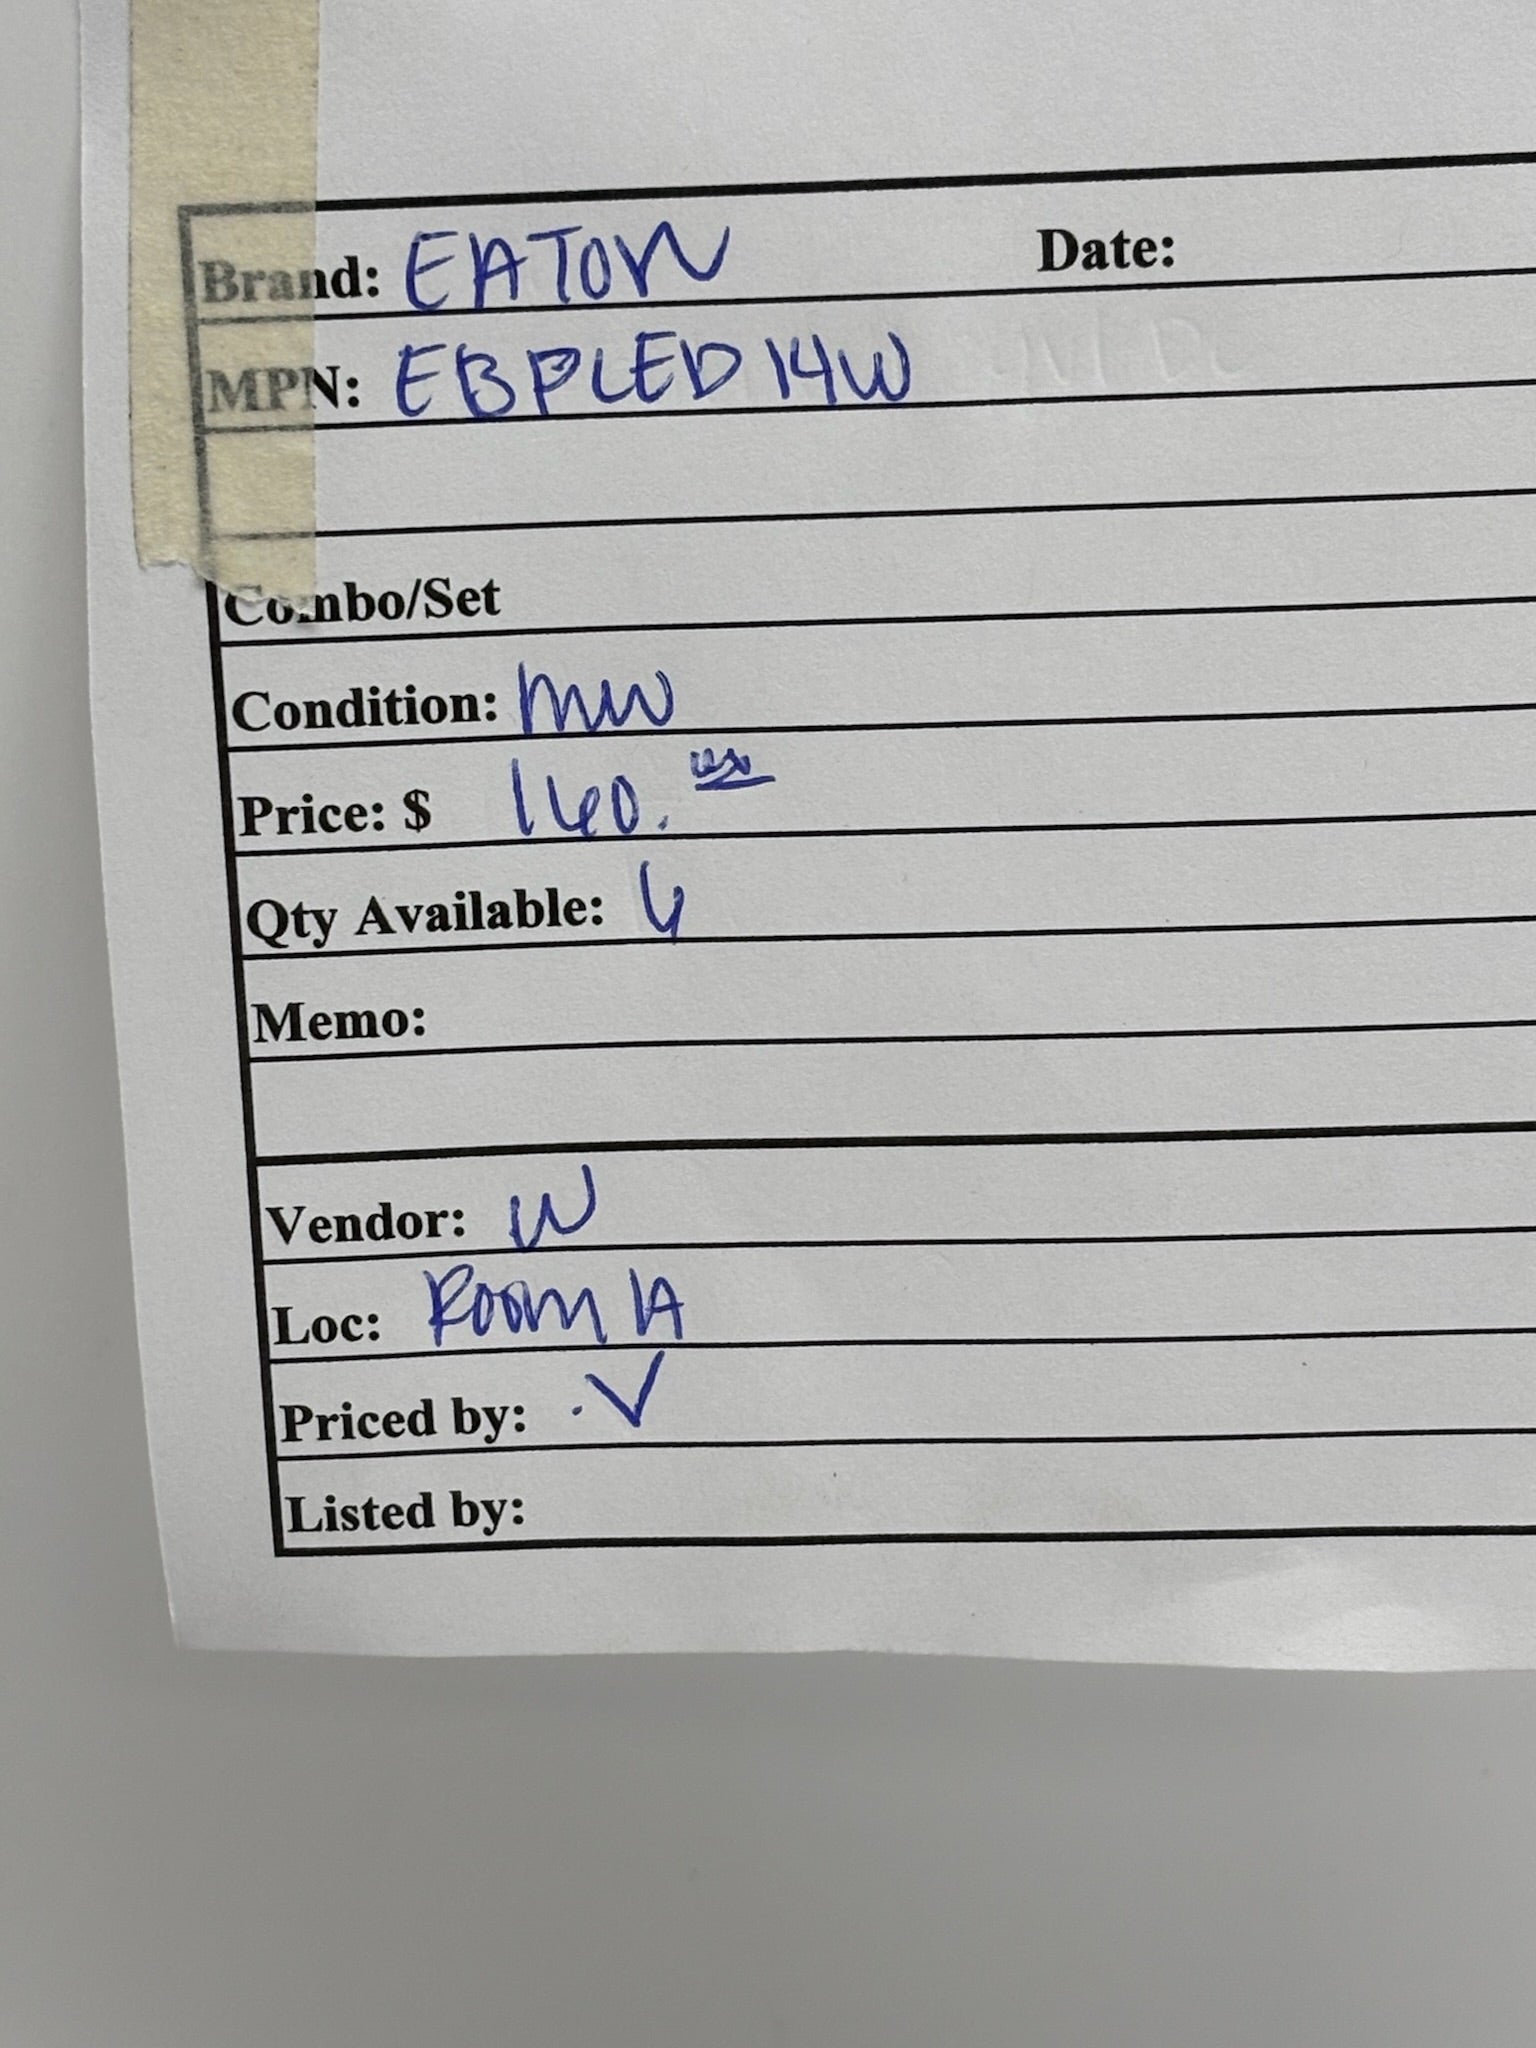 Brand: EATON Date:
MPN: EBPLED14W
Combo/Set
Condition:
Price: $ 160.
Qty Available: 6
Memo:
Vendor: W
Loc: Room 1A
Priced by: .V
Listed by: